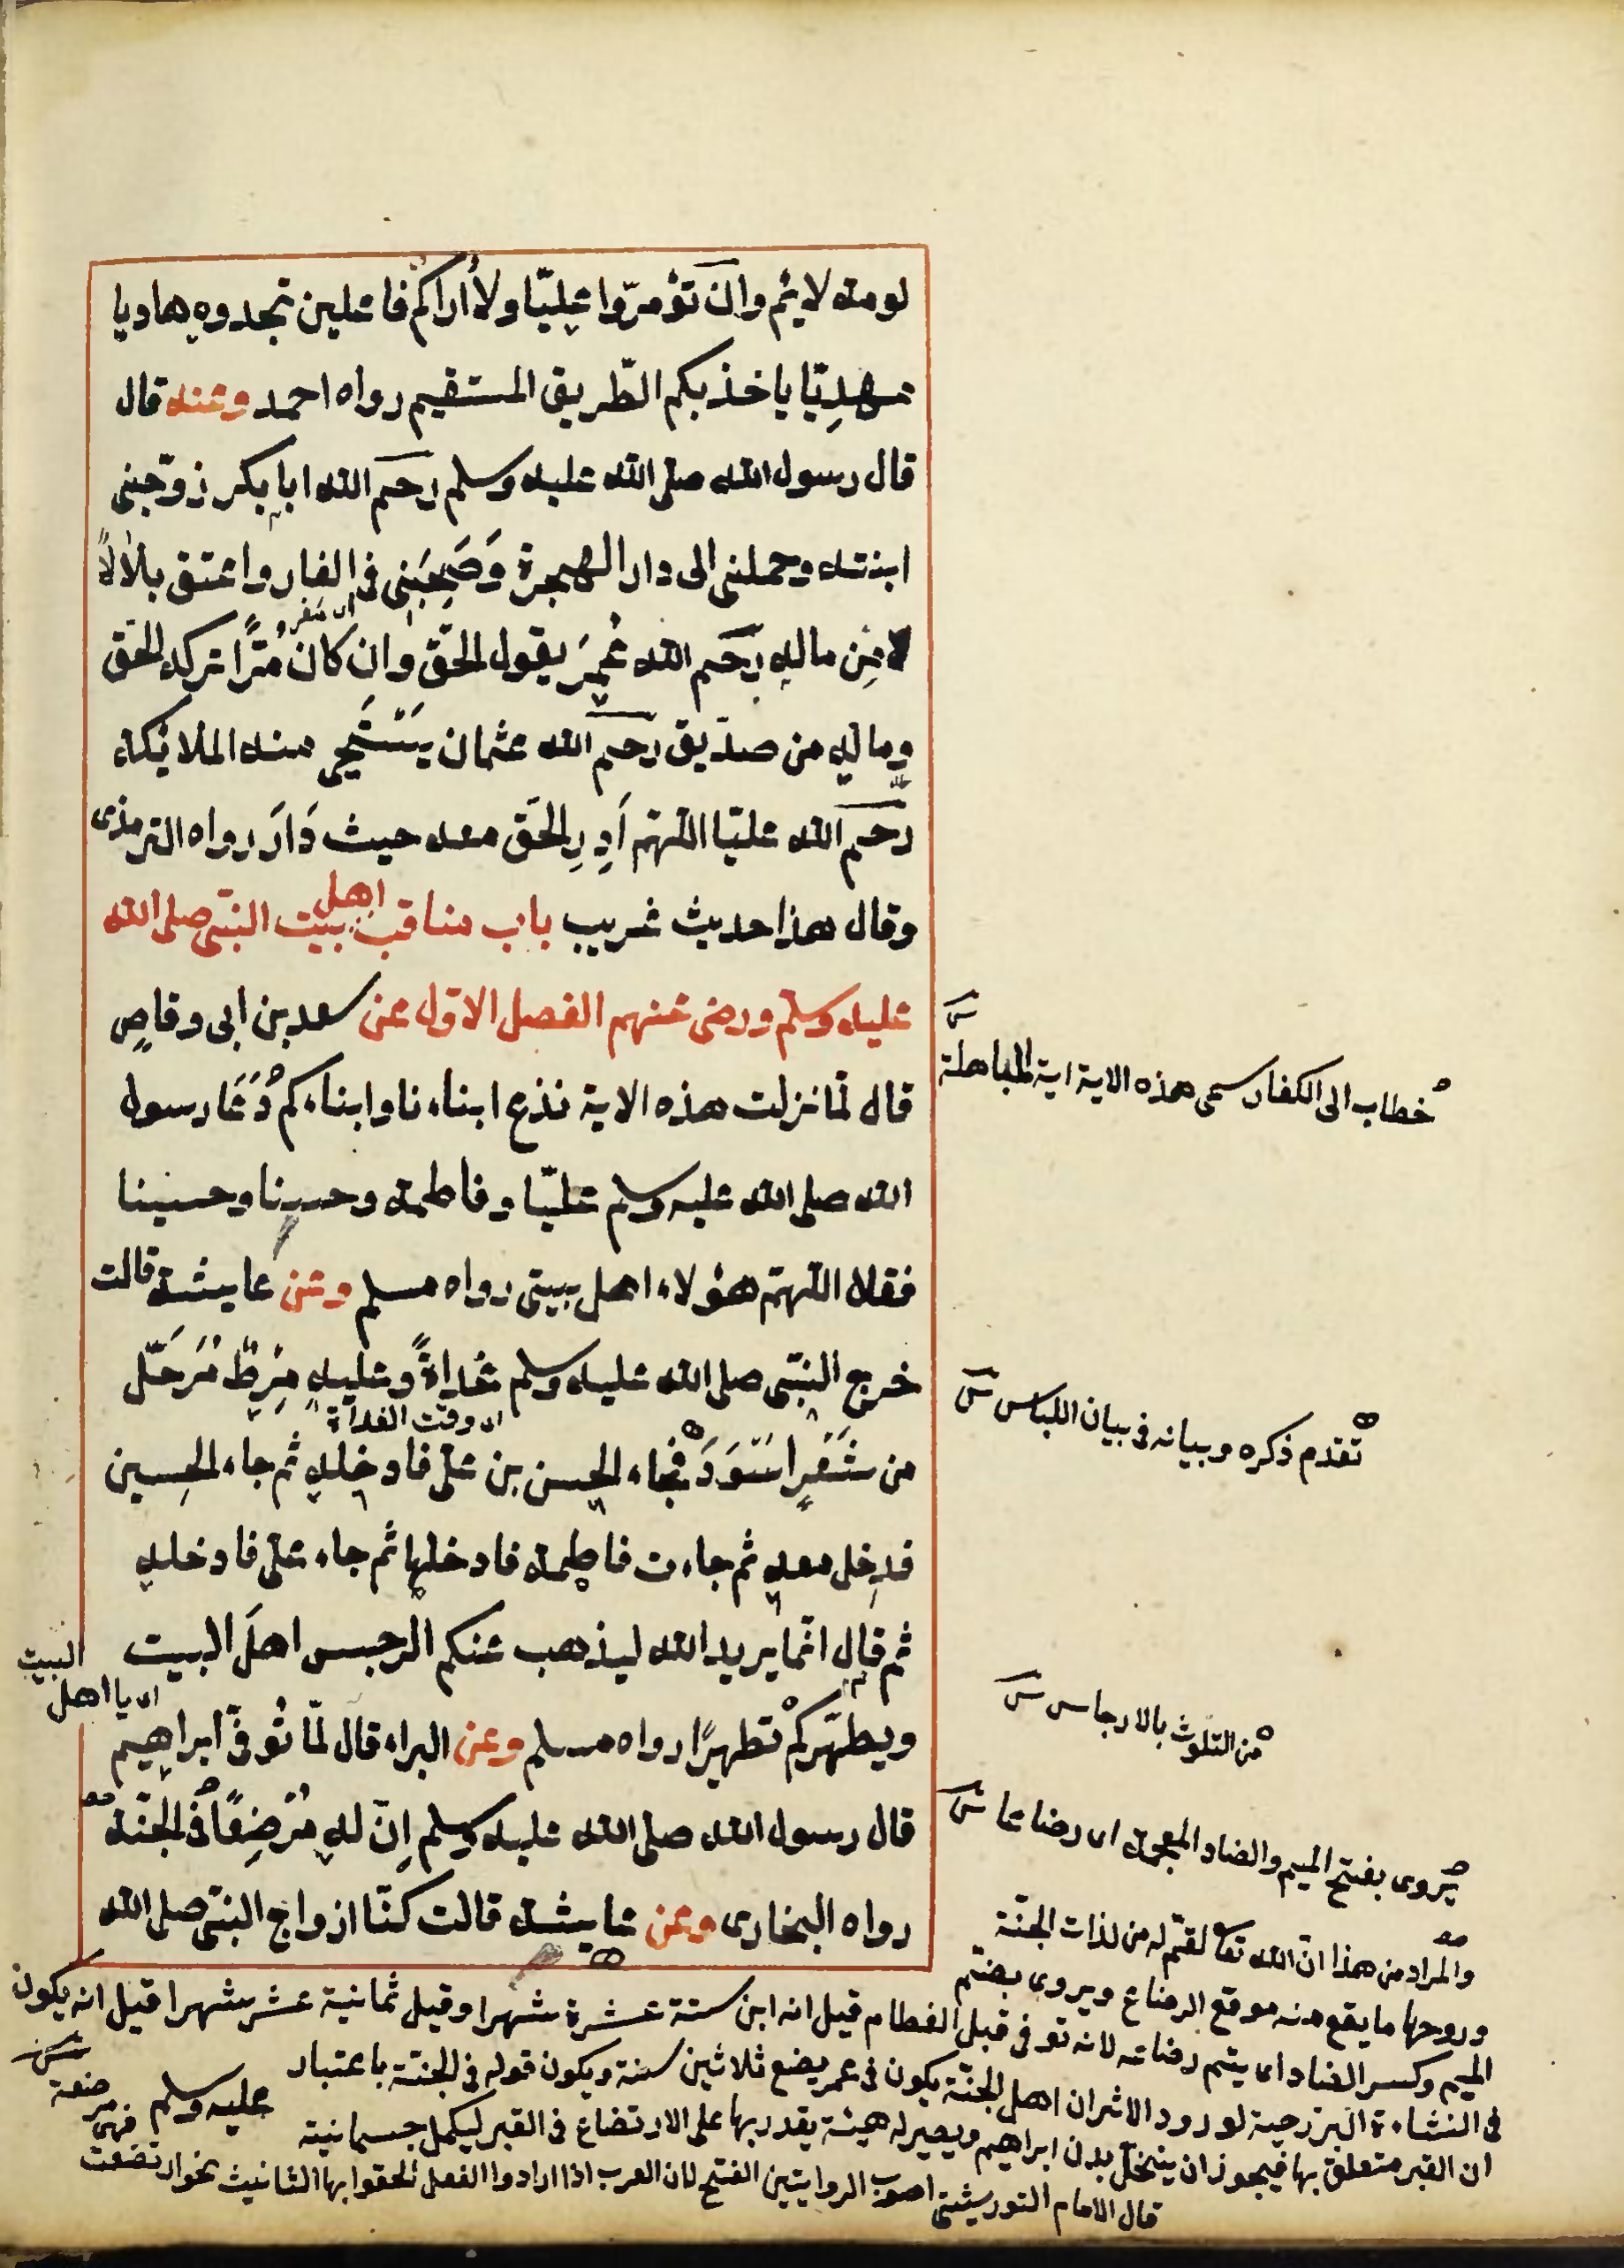 لومة لايئم وان تؤمرّوا عليّا ولا أراكم فاعلين تجدوه هاديا
مهدِيّا ياخذ بكم الطّريق المستقيم رواه احمد وعنه قال
قال رسول الله صلى الله عليه وسلم رحم الله ابابكر زوّجنى
ابنته وحملنى الى دار الهجرة وَصَحِبَنِى فى الغار واعتق بلالاً
مِن ماله رحم الله عُمرَ يقول الحقّ وان كان مُرًّا تركه الحق
وماله من صدّيق رحم الله عثمان يَسْتَحْيى منه الملائكة
رحم الله عليّا اللّهمّ اَدِرِ الحَقّ معه حيث دَارَ رواه الترمذى
وقال هذا حديث غريب باب مناقب اهل بيت النبّى صلى الله
عليه وسلّم ورضى عنهم الفصل الاوّل عن سعد بن ابى وقاصٍ
قال لمّا نزلت هذه الاية نذع ابناءنا وابناءكم دَعَا رسول
الله صلى الله عليه وسلم عليّا وفاطمة وحسنا وحسينا
فقال اللّهمّ هؤلاء اهل بيتى رواه مسلم وعن عايشة قالت
خرج النبّى صلى الله عليه وسلم غداةً وعليه مِرطٌ مُرَحَّل
اى وقت الغداة
من شَعَرٍ اسْوَدَ فجاء الحسن بن علىّ فادخله ثم جاء الحسين
فدخل معه ثم جاءت فاطمة فادخلها ثم جاء علىّ فادخله
ثم قال انّما يريد الله ليذهب عنكم الرجس اهلَ البيت
اى يا اهل البيت
ويطهّركمْ تطهيرًا رواه مسلم وعن البراء قال لمّا تُوفّى ابراهيم
قال رسول الله صلى الله عليه وسلم اِنّ له مُرْضِعًا فى الجنّة
رواه البخارى وعن عايشة قالت كنّا ازواج النبّى صلى الله
عليه وسلم
خطاب الى الكفار سمى هذه الاية اية المباهلة
تقدم ذكره وبيانه فى بيان اللباس
من التلوث بالارجاس
يروى بفتح الميم والضاد المعجمة اى رضاعا
والمراد من هذا انّ الله تعا لقيّم له من لذات الجنّة
وروحها ما يقع منه موقع الرضاع ويروى بضم
الميم وكسر الضاد اى يتم رضاعه لانه توفى قبل الفطام قيل انه ابن ستة عشرة شهرا وقيل ثمانية عشر شهرا قيل انه يكون
فى النشاءة البرزحية لورود الاثر ان اهل الجنّة يكون فى عمر بضع ثلاثين سنة ويكون قوله فى الجنّة باعتبار
ان القبر متعلق بها فيجوز ان ينتقل بدن ابراهيم ويصير له هيئة يقدر بها على الارتضاع فى القبر ليكمل جسمانية
قال الامام التوربشتى اصوب الروايتين الفتح لان العرب اذا ارادوا الفعل الحقوا بها التانيث نحو ارتضعت
فهى مرضعة